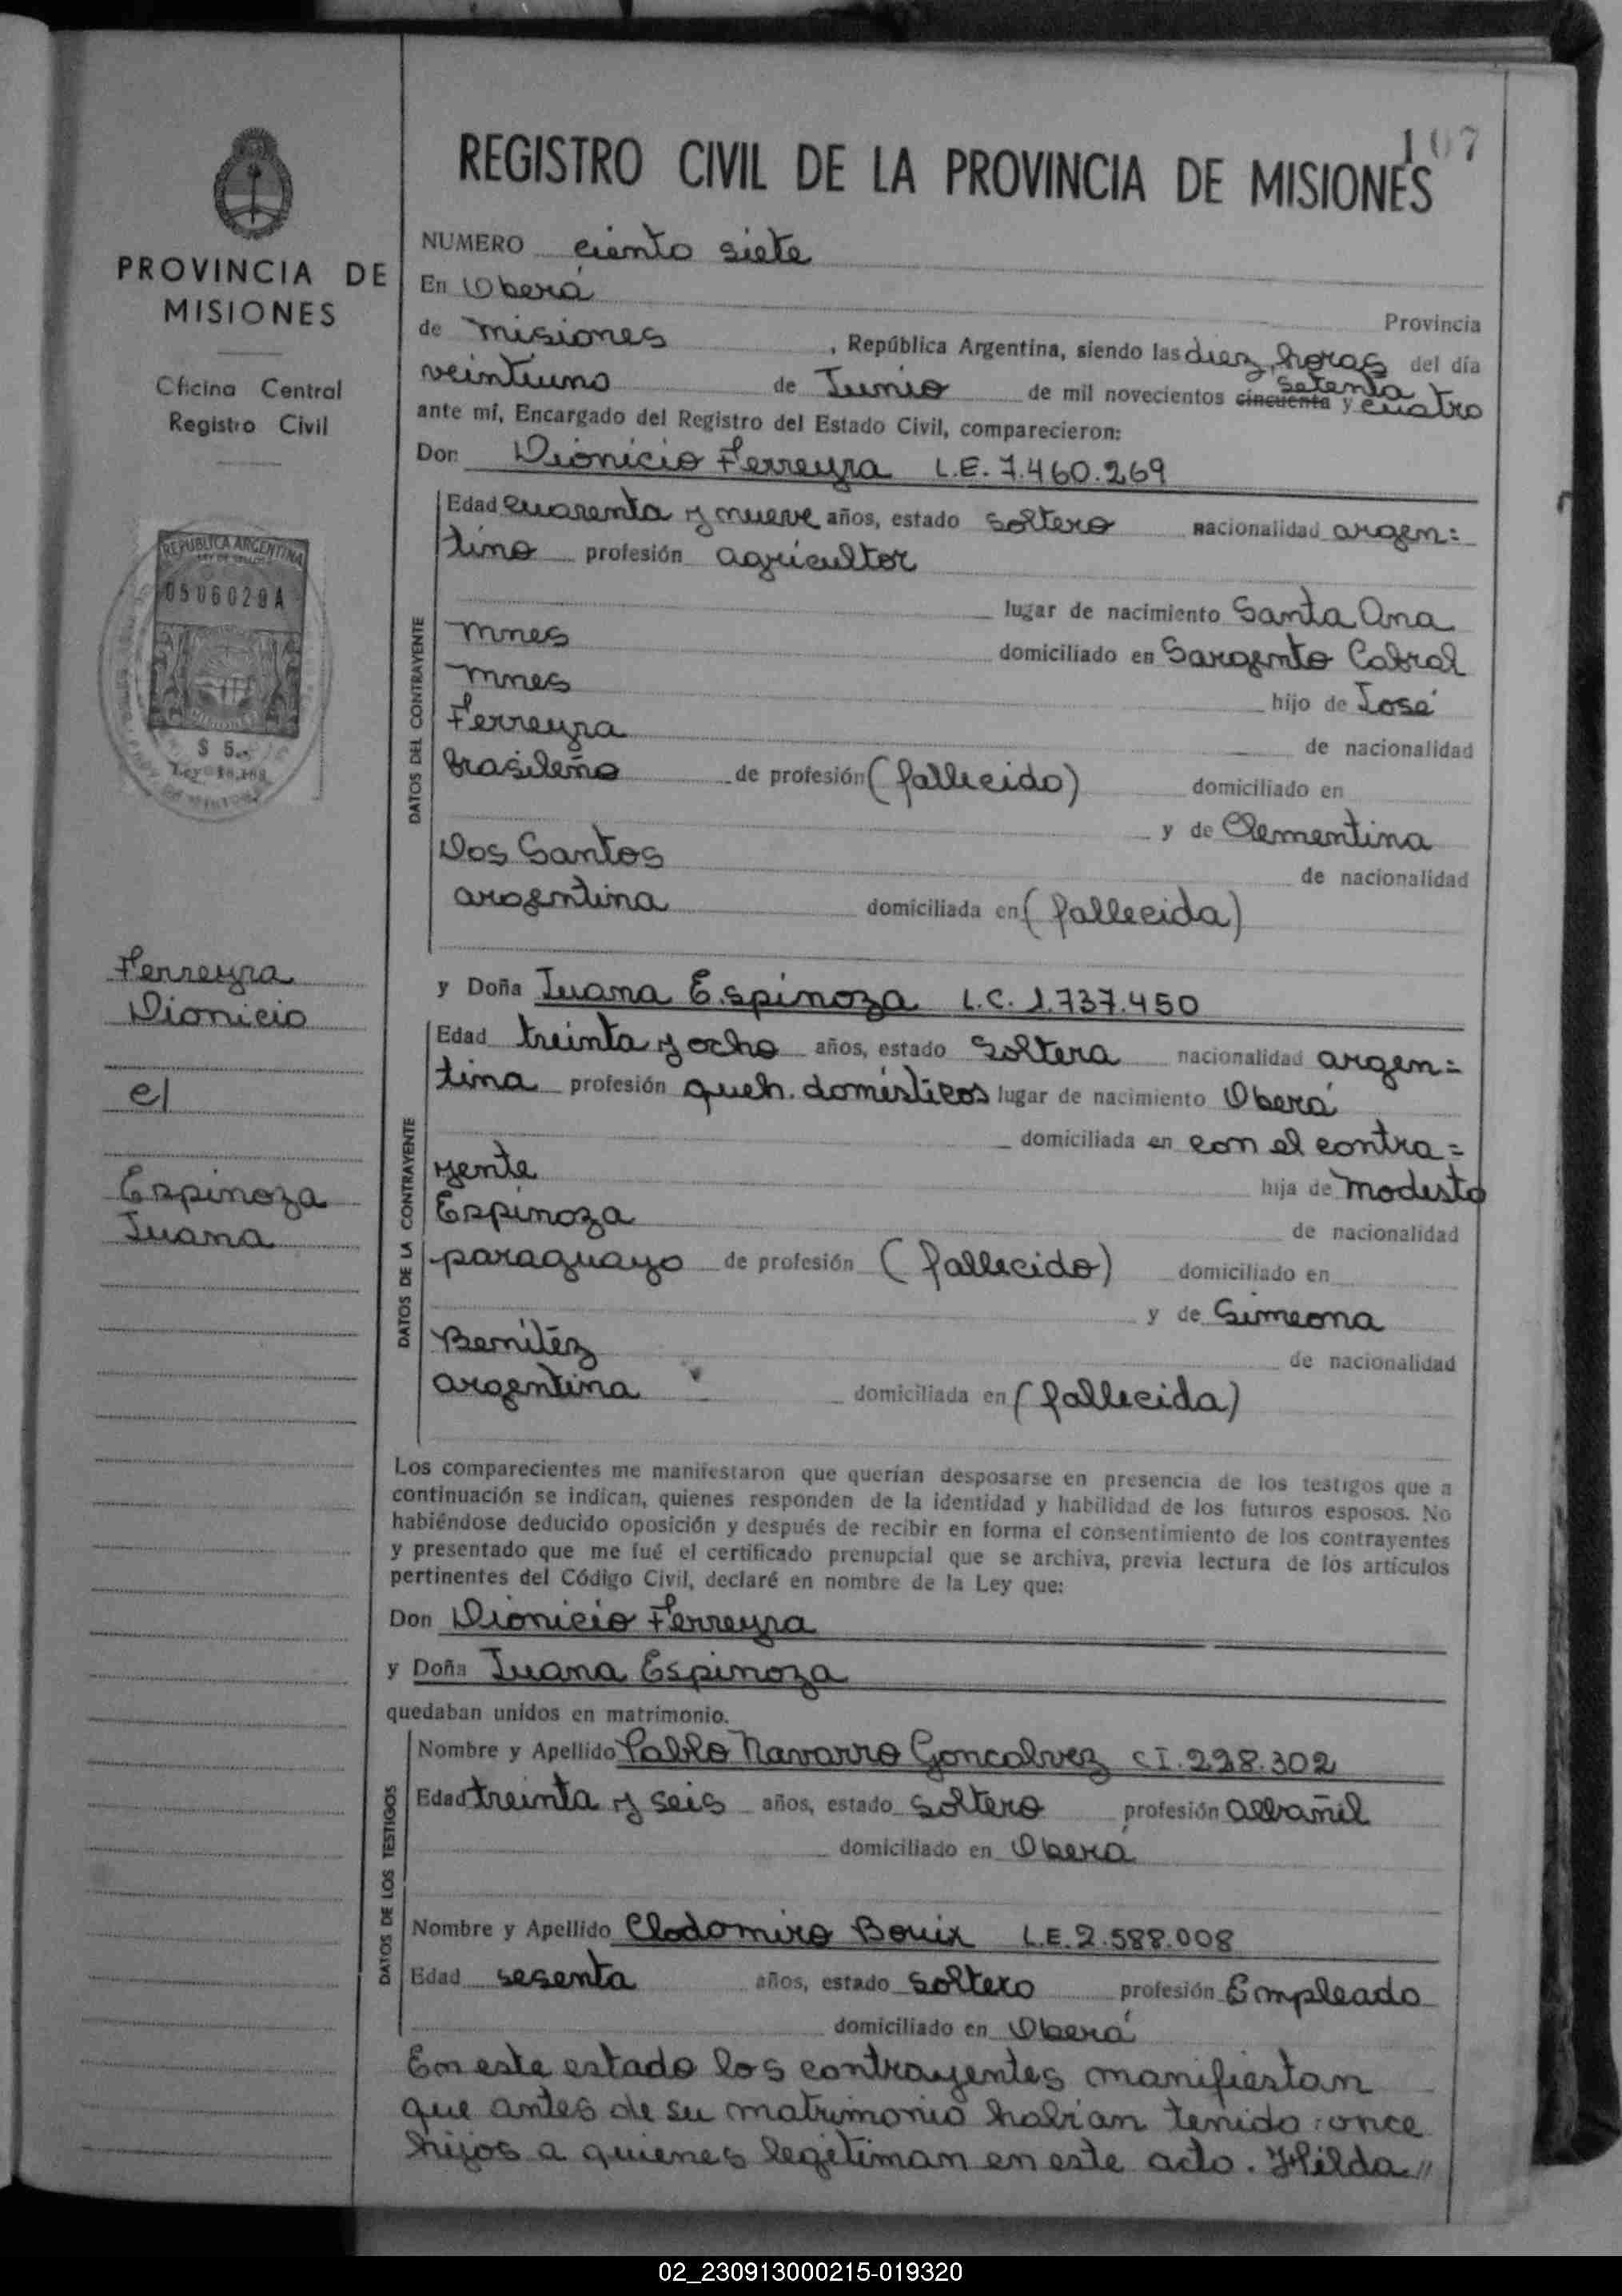 107
REGISTRO CIVIL DE LA PROVINCIA DE MISIONES
PROVINCIA DE
MISIONES
Oficina Central
Registro Civil
REPUBLICA ARGENTINA
LEY DE SELLOS
0506029A
MISIONES
$ 5.-
Ferreyra
Dionicio
c/
Espinoza
Juana
NUMERO ciento siete
En Oberá Provincia
de misiones, República Argentina, siendo las diez horas del día
veintiuno de Junio de mil novecientos cincuenta setenta y cuatro
ante mí, Encargado del Registro del Estado Civil, comparecieron:
Don Dionicio Ferreyra L.E. 7.460.269
DATOS DEL CONTRAYENTE
Edad cuarenta y nueve años, estado soltero nacionalidad argen=
tino profesión agricultor
lugar de nacimiento Santa Ana
mnes domiciliado en Sargento Cabral
mnes hijo de José
Ferreyra de nacionalidad
brasileño de profesión (fallecido) domiciliado en
y de Clementina
Dos Santos de nacionalidad
argentina domiciliada en (fallecida)
y Doña Juana Espinoza L.C. 1.737.450
DATOS DE LA CONTRAYENTE
Edad treinta y ocho años, estado soltera nacionalidad argen=
tina profesión queh. domésticos lugar de nacimiento Oberá
domiciliada en con el contra=
yente hija de modesto
Espinoza de nacionalidad
paraguayo de profesión (fallecido) domiciliado en
y de Simeona
Benítez de nacionalidad
argentina domiciliada en (fallecida)
Los comparecientes me manifestaron que querían desposarse en presencia de los testigos que a
continuación se indican, quienes responden de la identidad y habilidad de los futuros esposos. No
habiéndose deducido oposición y después de recibir en forma el consentimiento de los contrayentes
y presentado que me fué el certificado prenupcial que se archiva, previa lectura de los artículos
pertinentes del Código Civil, declaré en nombre de la Ley que:
Don Dionicio Ferreyra
y Doña Juana Espinoza
quedaban unidos en matrimonio.
DATOS DE LOS TESTIGOS
Nombre y Apellido Pablo Navarro Goncalvez C.I. 228.302
Edad treinta y seis años, estado soltero profesión albañil
domiciliado en Oberá
Nombre y Apellido Clodomiro Bouix L.E. 2.588.008
Edad sesenta años, estado soltero profesión Empleado
domiciliado en Oberá
En este estado los contrayentes manifiestan
que antes de su matrimonio habían tenido once
hijos a quienes legitiman en este acto. Hilda//
02_230913000215-019320